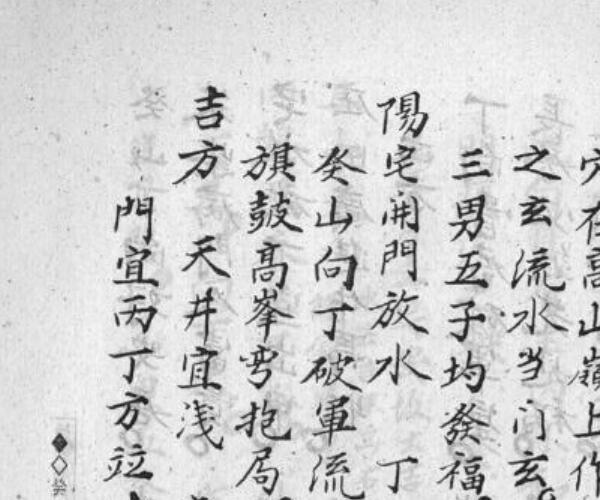 穴在高山嶺上作
之玄流水当门玄
三男五子均發福
陽宅開門放水 丁
癸山向丁破軍流
旗鼓高峯弯抱局
吉方 天井宜浅
門宜丙丁方竝
癸